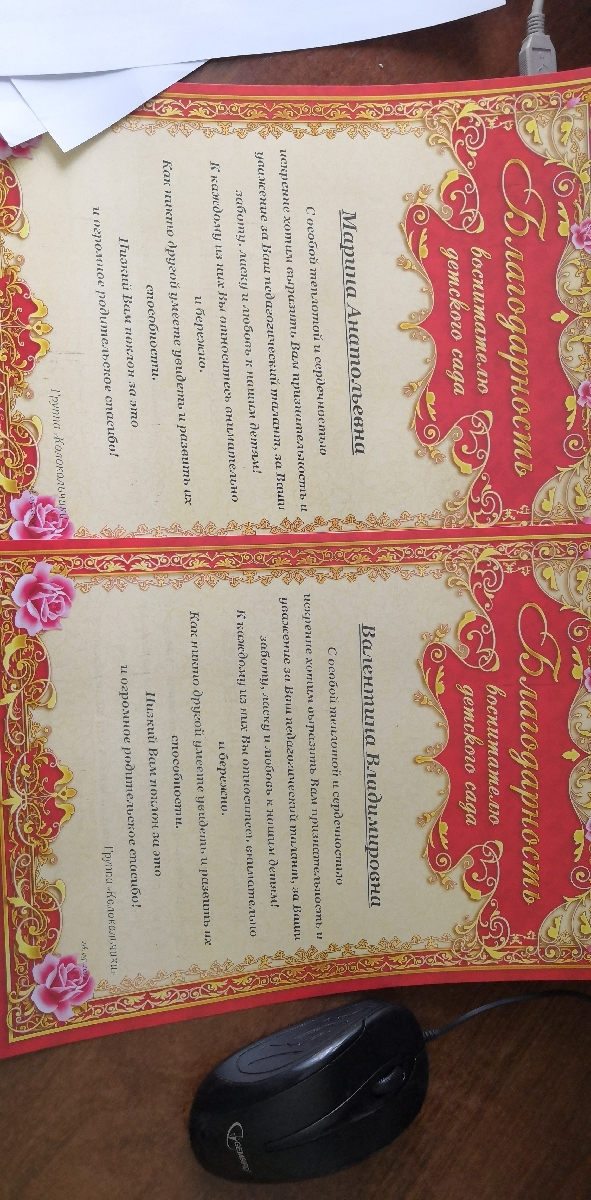 Благодарность
воспитателю
детского сада
Марина Анатольевна
С особой теплотой и сердечностью
искренне хотим выразить Вам признательность и
уважение за Ваш педагогический талант, за Вашу
заботу, ласку и любовь к нашим детям!
К каждому из них Вы относитесь внимательно
и бережно.
Как никто другой умеете увидеть и развить их
способности.
Низкий Вам поклон за это
и огромное родительское спасибо!
Группа «Колокольчики
Благодарность
воспитателю
детского сада
Валентина Владимировна
С особой теплотой и сердечностью
искренне хотим выразить Вам признательность и
уважение за Ваш педагогический талант, за Вашу
заботу, ласку и любовь к нашим детям!
К каждому из них Вы относитесь внимательно
и бережно.
Как никто другой умеете увидеть и развить их
способности.
Низкий Вам поклон за это
и огромное родительское спасибо!
Группа «Колокольчики»
GEMBIRD